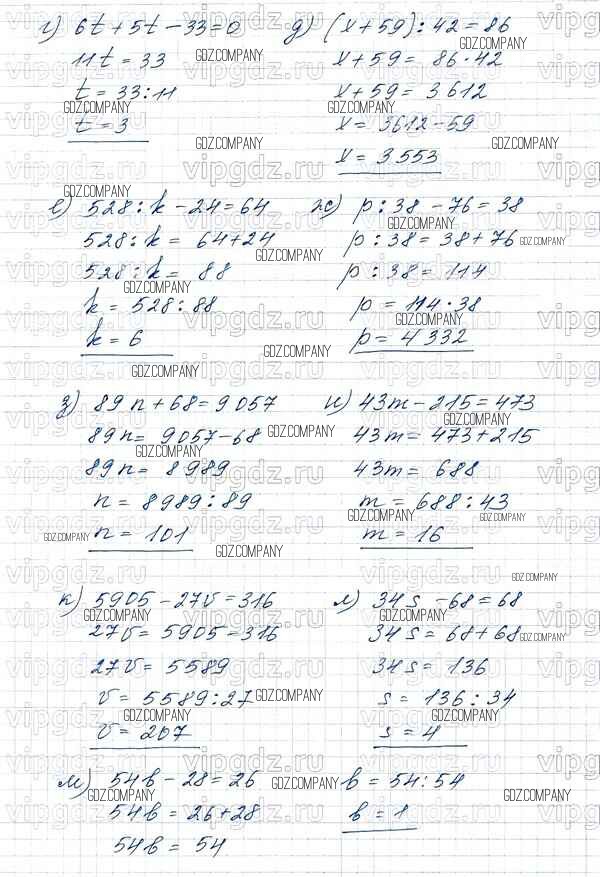 г) 6t + 5t - 33 = 0
11t = 33
t = 33 : 11
t = 3
д) (x + 59) : 42 = 86
x + 59 = 86 · 42
x + 59 = 3612
x = 3612 - 59
x = 3553
е) 528 : k - 24 = 64
528 : k = 64 + 24
528 : k = 88
k = 528 : 88
k = 6
ж) p : 38 - 76 = 38
p : 38 = 38 + 76
p : 38 = 114
p = 114 · 38
p = 4332
з) 89n + 68 = 9057
89n = 9057 - 68
89n = 8989
n = 8989 : 89
n = 101
и) 43m - 215 = 473
43m = 473 + 215
43m = 688
m = 688 : 43
m = 16
к) 5905 - 27v = 316
27v = 5905 = 316
27v = 5589
v = 5589 : 27
v = 207
л) 34s - 68 = 68
34s = 68 + 68
34s = 136
s = 136 : 34
s = 4
м) 54b - 28 = 26
54b = 26 + 28
54b = 54
b = 54 : 54
b = 1
GDZ.COMPANY
vipgdz.ru